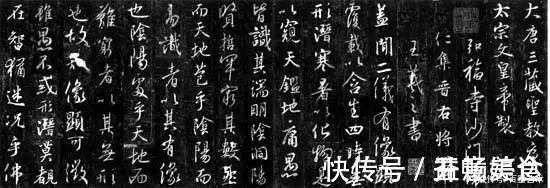 大唐三藏聖教序
太宗文皇帝製
弘福寺沙門
仁集晉右將
王羲之書
蓋聞二儀有像
覆載以含生四時
形潛寒暑以化物是
以窺天鑑地庸愚
皆識其端明陰洞陽
賢哲罕窮其數然
而天地苞乎陰陽而
易識者以其有像
也陰陽處乎天地而
難窮者以其無形
也故知像顯可徵
雖愚不惑形潛莫覩
在智猶迷況乎佛
快传号 /